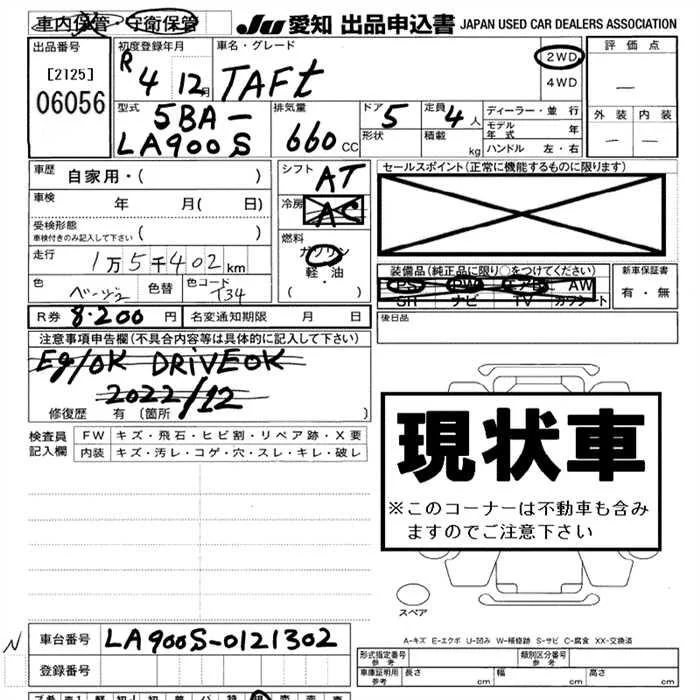 車内保管・守衛保管
JU 愛知 出品申込書 JAPAN USED CAR DEALERS ASSOCIATION
出品番号
[2125]
06056
初度登録年月
R 4 12月
車名・グレード
TAFt
2WD
4WD
評価点
外装 内装
型式
5BA-
LA900S
排気量
660 CC
ドア 5
形状
定員 4 人
積載 kg
ディーラー・並行
モデル年式 年
ハンドル 左・右
車歴 自家用・( )
車検 年 月( 日)
受検形態
車検付きのみ記入して下さい ( )
走行 1万5千402km
色 ベージュ 色替 色コード T34
シフト AT
冷房 AC
燃料
ガソリン
軽・油
( )
セールスポイント(正常に機能するものに限ります)
装備品(純正品に限り○をつけてください)
PS PW エアB AW
SR ナビ TV カワシート
新車保証書
有・無
R券 8,200円 名変通知期限 月 日
後日品
注意事項申告欄(不具合内容等は具体的に記入して下さい)
Eg/OK DRiVEOK
2022/12
修復歴 有 〔箇所 〕
検査員
記入欄
FW キズ・飛石・ヒビ割・リペア跡・X要
内装 キズ・汚レ・コゲ・穴・スレ・キレ・破レ
現状車
※このコーナーは不動車も含み
ますのでご注意下さい
スペア
A-キズ E-エクボ U-凹み W-補修跡 S-サビ C-腐食 XX-交換済
N 車台番号 LA900S-0121302
登録番号
形式指定番号
参考
類別区分番号
参考
車庫証明用
参考
長さ cm 幅 cm 高さ cm